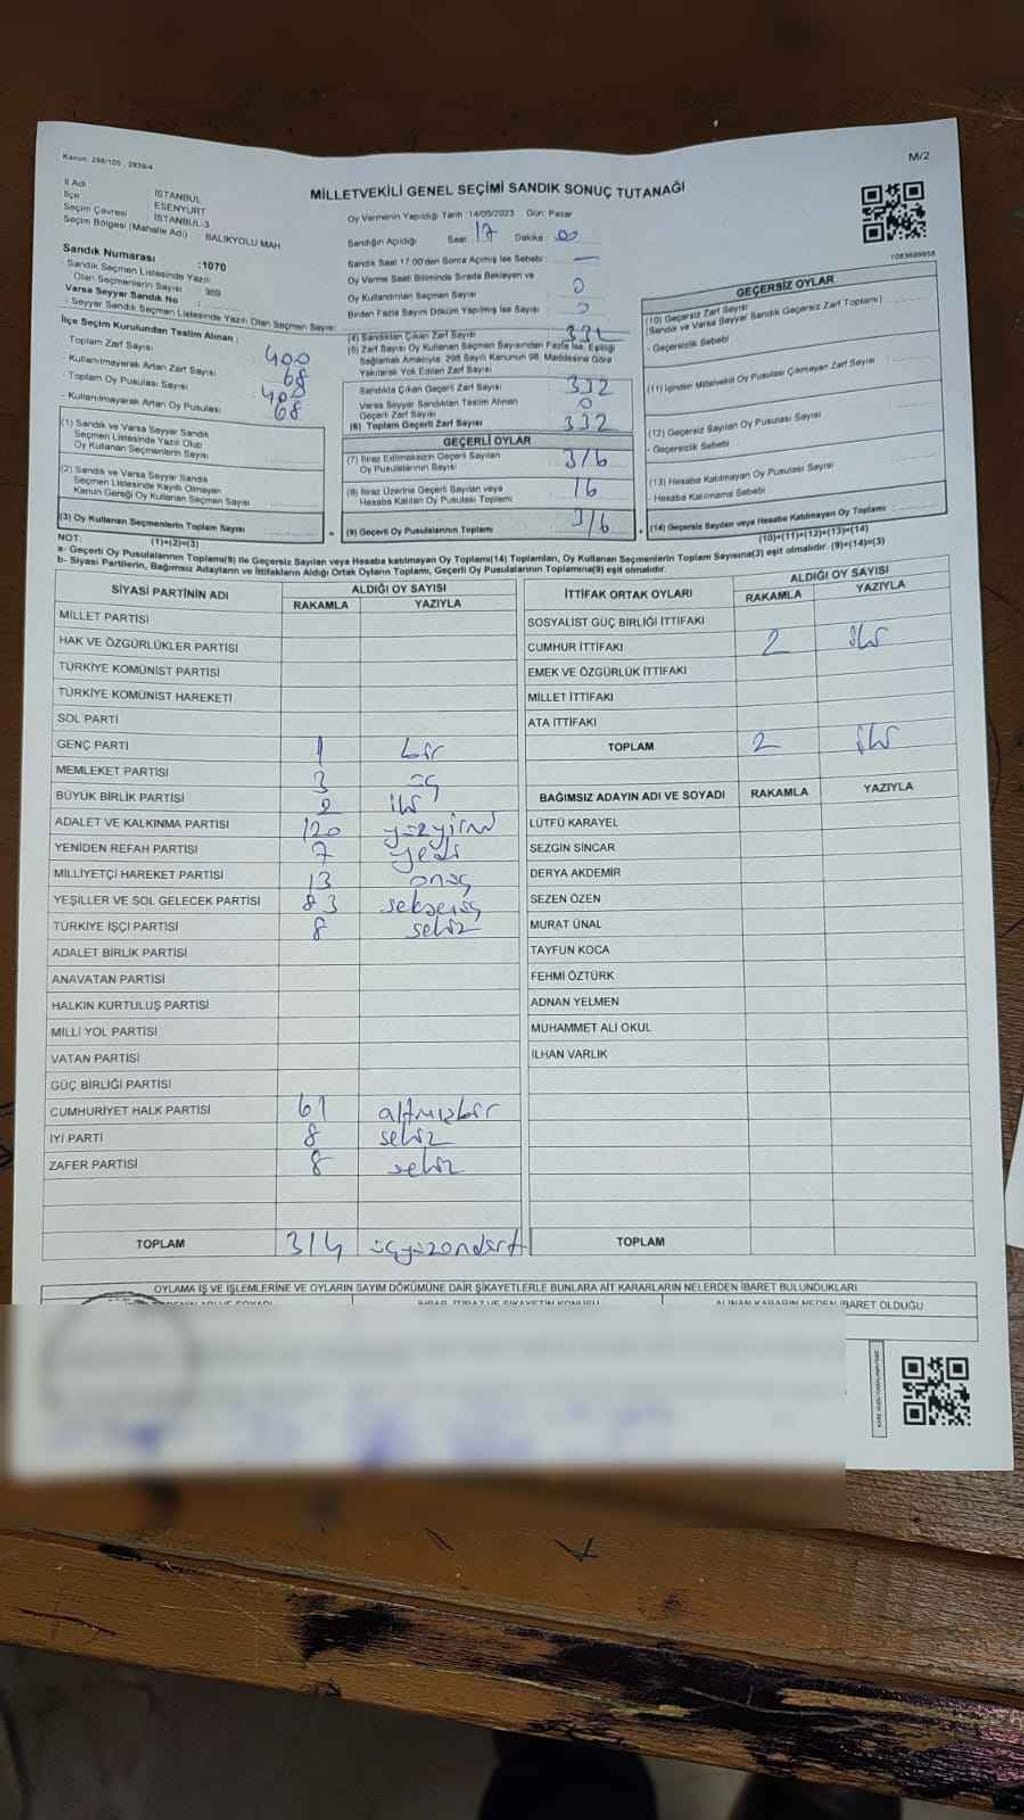 Kanun: 298/105 2839/4
M/2
İl Adı İSTANBUL
İlçe ESENYURT
Seçim Çevresi İSTANBUL-3
Seçim Bölgesi (Mahalle Adı) : BALIKYOLU MAH
MİLLETVEKİLİ GENEL SEÇİMİ SANDIK SONUÇ TUTANAĞI
Oy Vermenin Yapıldığı Tarih :14/05/2023 Gün: Pazar
Sandığın Açıldığı Saat: 17 Dakika: 00
Sandık Saat 17.00'den Sonra Açılmış İse Sebebi : —
Oy Verme Saati Bitiminde Sırada Bekleyen ve
Oy Kullandırılan Seçmen Sayısı 0
Birden Fazla Sayım Döküm Yapılmış İse Sayısı : 0
Sandık Numarası :1070
Sandık Seçmen Listesinde Yazılı
Olan Seçmenlerin Sayısı
Varsa Seyyar Sandık No :
- Seyyar Sandık Seçmen Listesinde Yazılı Olan Seçmen Sayısı
İlçe Seçim Kurulundan Teslim Alınan :
Toplam Zarf Sayısı 400
- Kullanılmayarak Artan Zarf Sayısı 68
- Toplam Oy Pusulası Sayısı
- Kullanılmayarak Artan Oy Pusulası 68
(1) Sandık ve Varsa Seyyar Sandık
Seçmen Listesinde Yazılı Olup
Oy Kullanan Seçmenlerin Sayısı
(2) Sandık ve Varsa Seyyar Sandık
Seçmen Listesinde Kayıtlı Olmayan
Kanun Gereği Oy Kullanan Seçmen Sayısı
(3) Oy Kullanan Seçmenlerin Toplam Sayısı
(1)+(2)=(3)
(4) Sandıktan Çıkan Zarf Sayısı 332
(5) Zarf Sayısı Oy Kullanan Seçmen Sayısından Fazla İse, Eşitliği
Sağlamak Amacıyla; 298 Sayılı Kanunun 98. Maddesine Göre
Yakılarak Yok Edilen Zarf Sayısı
Sandıkta Çıkan Geçerli Zarf Sayısı 332
Varsa Seyyar Sandıktan Teslim Alınan
Geçerli Zarf Sayısı 0
(6) Toplam Geçerli Zarf Sayısı 332
GEÇERLİ OYLAR
(7) İtiraz Edilmeksizin Geçerli Sayılan
Oy Pusulalarının Sayısı 316
(8) İtiraz Üzerine Geçerli Sayılan veya
Hesaba Katılan Oy Pusulası Toplamı 16
(9) Geçerli Oy Pusulalarının Toplamı 316
1083689958
GEÇERSİZ OYLAR
(10) Geçersiz Zarf Sayısı
(Sandık ve Varsa Seyyar Sandık Geçersiz Zarf Toplamı)
- Geçersizlik Sebebi
(11) İçinden Milletvekili Oy Pusulası Çıkmayan Zarf Sayısı
(12) Geçersiz Sayılan Oy Pusulası Sayısı
- Geçersizlik Sebebi
(13) Hesaba Katılmayan Oy Pusulası Sayısı
- Hesaba Katılmama Sebebi
(14) Geçersiz Sayılan veya Hesaba Katılmayan Oy Toplamı
(10)+(11)+(12)+(13)=(14)
NOT:
a- Geçerli Oy Pusulalarının Toplamı(9) ile Geçersiz Sayılan veya Hesaba katılmayan Oy Toplamı(14) Toplamları, Oy Kullanan Seçmenlerin Toplam Sayısına(3) eşit olmalıdır. (9)+(14)=(3)
b- Siyasi Partilerin, Bağımsız Adayların ve İttifakların Aldığı Ortak Oyların Toplamı, Geçerli Oy Pusulalarının Toplamına(9) eşit olmalıdır.
SİYASİ PARTİNİN ADI ALDIĞI OY SAYISI
RAKAMLA YAZIYLA
MİLLET PARTİSİ
HAK VE ÖZGÜRLÜKLER PARTİSİ
TÜRKİYE KOMÜNİST PARTİSİ
TÜRKİYE KOMÜNİST HAREKETİ
SOL PARTİ
GENÇ PARTİ 1 bir
MEMLEKET PARTİSİ 3 üç
BÜYÜK BİRLİK PARTİSİ 2 iki
ADALET VE KALKINMA PARTİSİ 120 yüzyirmi
YENİDEN REFAH PARTİSİ 7 yedi
MİLLİYETÇİ HAREKET PARTİSİ 13 onüç
YEŞİLLER VE SOL GELECEK PARTİSİ 83 seksenüç
TÜRKİYE İŞÇİ PARTİSİ 8 sekiz
ADALET BİRLİK PARTİSİ
ANAVATAN PARTİSİ
HALKIN KURTULUŞ PARTİSİ
MİLLİ YOL PARTİSİ
VATAN PARTİSİ
GÜÇ BİRLİĞİ PARTİSİ
CUMHURİYET HALK PARTİSİ 61 altmışbir
İYİ PARTİ 8 sekiz
ZAFER PARTİSİ 8 sekiz
TOPLAM 314 üçyüzondört
İTTİFAK ORTAK OYLARI ALDIĞI OY SAYISI
RAKAMLA YAZIYLA
SOSYALİST GÜÇ BİRLİĞİ İTTİFAKI
CUMHUR İTTİFAKI 2 iki
EMEK VE ÖZGÜRLÜK İTTİFAKI
MİLLET İTTİFAKI
ATA İTTİFAKI
TOPLAM 2 iki
BAĞIMSIZ ADAYIN ADI VE SOYADI RAKAMLA YAZIYLA
LÜTFÜ KARAYEL
SEZGİN SİNCAR
DERYA AKDEMİR
SEZEN ÖZEN
MURAT ÜNAL
TAYFUN KOCA
FEHMİ ÖZTÜRK
ADNAN YELMEN
MUHAMMET ALİ OKUL
İLHAN VARLIK
TOPLAM
OYLAMA İŞ VE İŞLEMLERİNE VE OYLARIN SAYIM DÖKÜMÜNE DAİR ŞİKAYETLERLE BUNLARA AİT KARARLARIN NELERDEN İBARET BULUNDUKLARI
ALINAN KARARIN NEDEN İBARET OLDUĞU